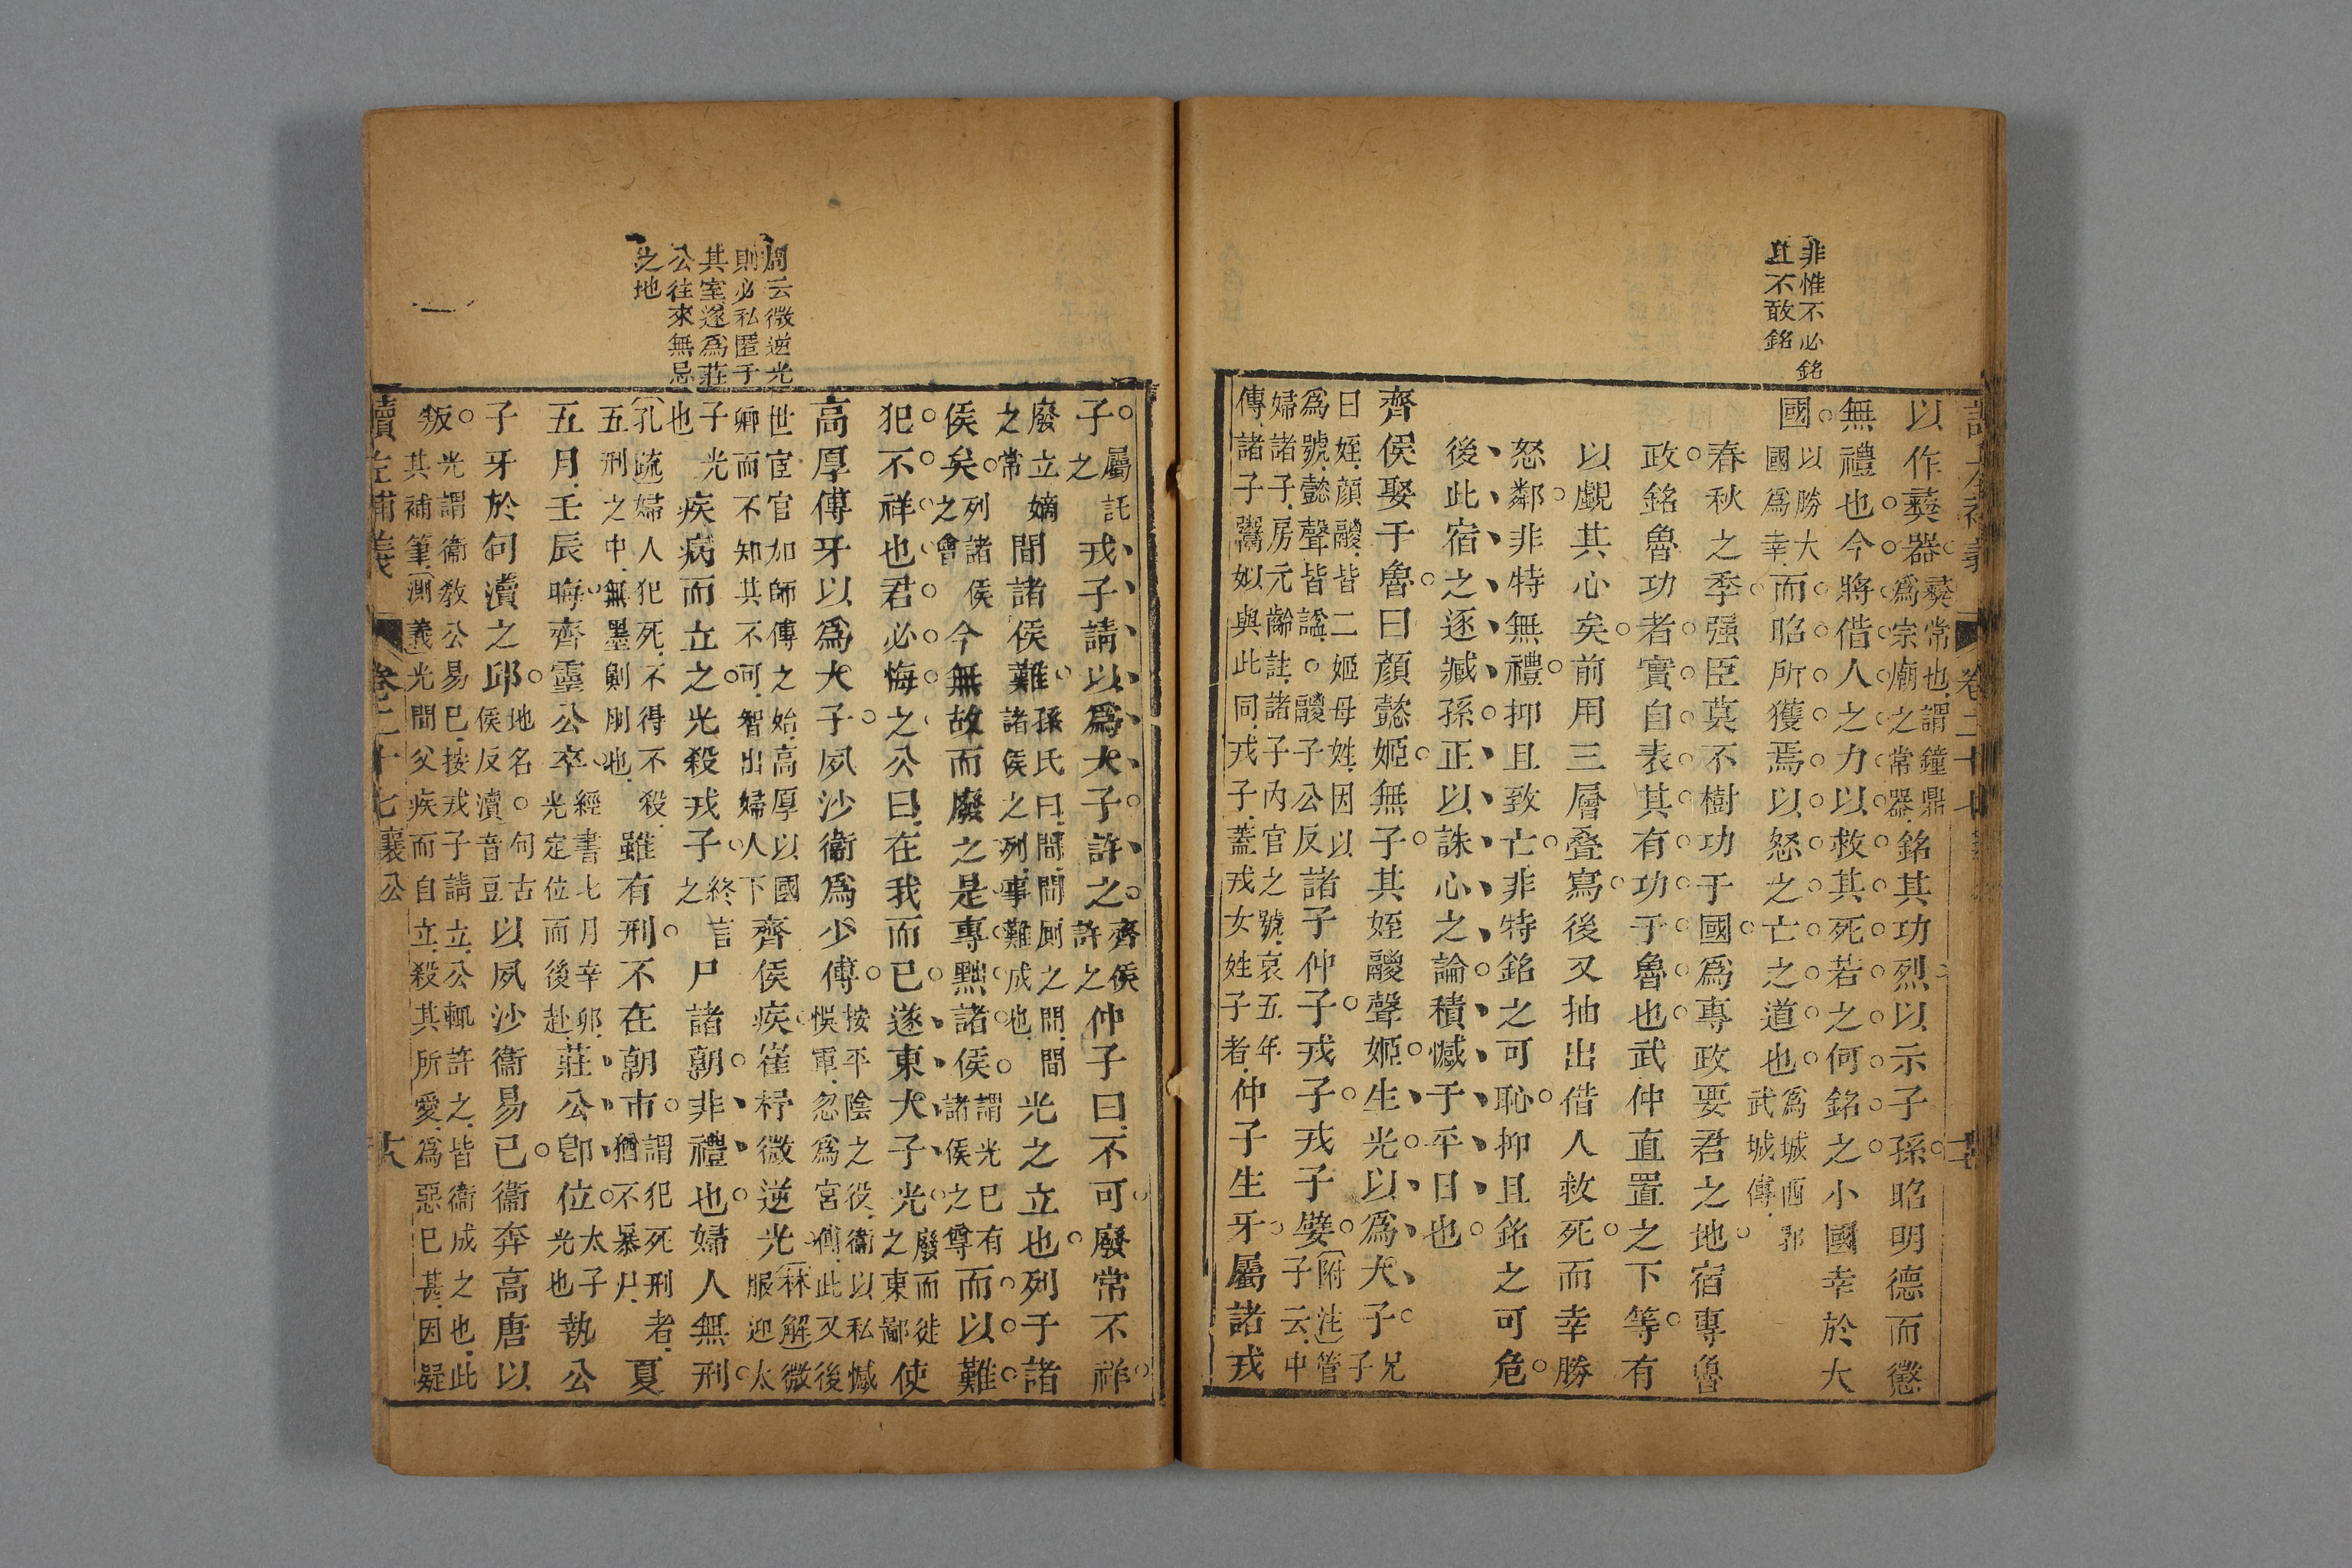 非惟不必銘
且不敢銘
以作彞器彞常也謂鐘鼎爲宗廟之常器銘其功烈以示子孫昭明德而懲
無禮也今將借人之力以救其死若之何銘之小國幸於大
國以勝大國爲幸而昭所獲焉以怒之亡之道也爲城西郛武城傳
春秋之季强臣莫不樹功于國爲專政要君之地宿專魯
政銘魯功者實自表其有功于魯也武仲直置之下等有
以覷其心矣前用三層叠寫後又抽出借人救死而幸勝
怒鄰非特無禮抑且致亡非特銘之可恥抑且銘之可危
後此宿之逐臧孫正以誅心之論積憾于平日也
齊侯娶于魯曰顔懿姬無子其姪鬷聲姬生光以爲大子兄子
曰姪顔鬷皆二姬母姓因以爲號懿聲皆諡○鬷子公反諸子仲子戎子戎子嬖(附注)管子云中
婦諸子房元齡註諸子內官之號哀五年傳諸子鬻姒與此同戎子蓋戎女姓子者仲子生牙屬諸戎
周云微逆光
則必私匿于
其室遂爲莊
公往來無忌
之地
子屬託之戎子請以爲大子許之齊侯許之仲子曰不可廢常不祥
廢立嫡之常間諸侯難孫氏曰間間厠之間間諸侯之列事難成也光之立也列于諸
侯矣列諸侯之會今無故而廢之是專黜諸侯謂光已有諸侯之尊而以難
犯不祥也君必悔之公曰在我而已遂東大子光廢而徙之東鄙使
高厚傅牙以爲大子夙沙衞爲少傅按平陰之役衞以私憾悞軍忽爲宮傅此又後
世宦官加師傅之始高厚以國卿而不知其不可智出婦人下齊侯疾崔杼微逆光(林解)微服迎太
子光也疾病而立之光殺戎子終言之尸諸朝非禮也婦人無刑
(孔疏)婦人犯死不得不殺五刑之中無墨劓刖也雖有刑不在朝市謂犯死刑者猶不暴尸夏
五月壬辰晦齊靈公卒經書七月辛卯光定位而後赴莊公卽位太子光也執公
子牙於句瀆之邱地名○句古侯反瀆音豆以夙沙衞易已衞奔高唐以
叛光謂衞教公易已按戎子請立公輒許之皆衞成之也此其補筆(測義)光間父疾而自立殺其所愛爲惡已甚因疑
讀左補義 卷二十七襄公